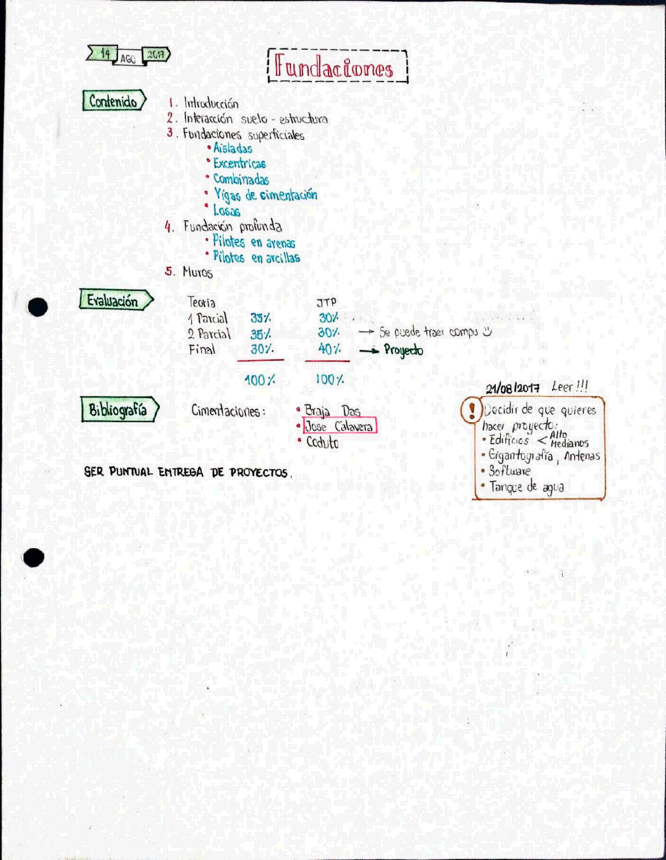 14 AGO 2017
Fundaciones
Contenido
1. Introducción
2. Interacción suelo - estructura
3. Fundaciones superficiales
• Aisladas
• Excentricas
• Combinadas
• Vigas de cimentación
• Losas
4. Fundación profunda
• Pilotes en arenas
• Pilotes en arcillas
5. Muros
Evaluación
Teoria JTP
1 Parcial 35% 30%
2 Parcial 35% 30% → Se puede traer compu
Final 30% 40% → Proyecto
100% 100%
Bibliografía
Cimentaciones: • Braja Das
• Jose Calavera
• Coduto
21/08/2017 Leer!!!
! Decidir de que quieres
hacer proyecto:
• Edificios < Alto Medianos
• Gigantografía, Antenas
• Software
• Tanque de agua
SER PUNTUAL ENTREGA DE PROYECTOS.